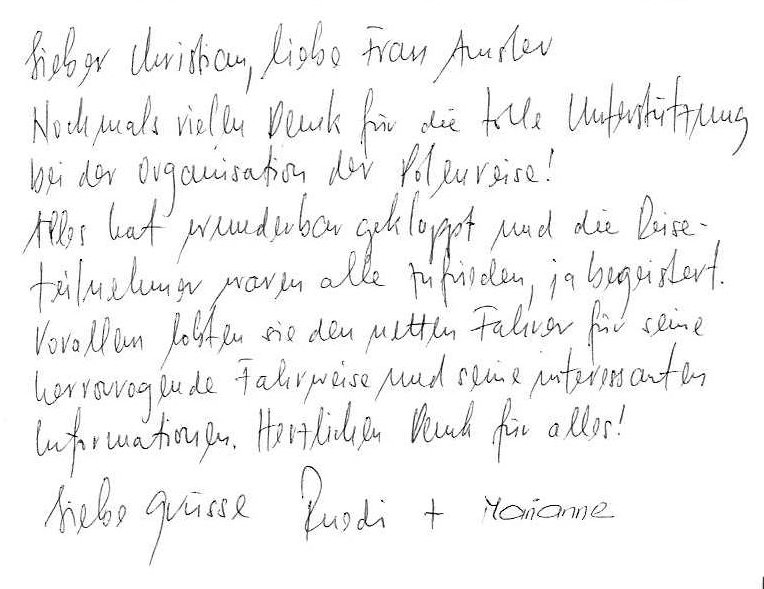 Lieber Christian, liebe Frau Amsler
Nochmals vielen Dank für die tolle Unterstützung
bei der Organisation der Polenreise!
Alles hat wunderbar geklappt und die Reise-
teilnehmer waren alle zufrieden, ja begeistert.
Vorallem lobten sie den netten Fahrer für seine
hervorragende Fahrweise und seine interessanten
Informationen. Herzlichen Dank für alles!
Liebe Grüsse Ruedi + Marianne